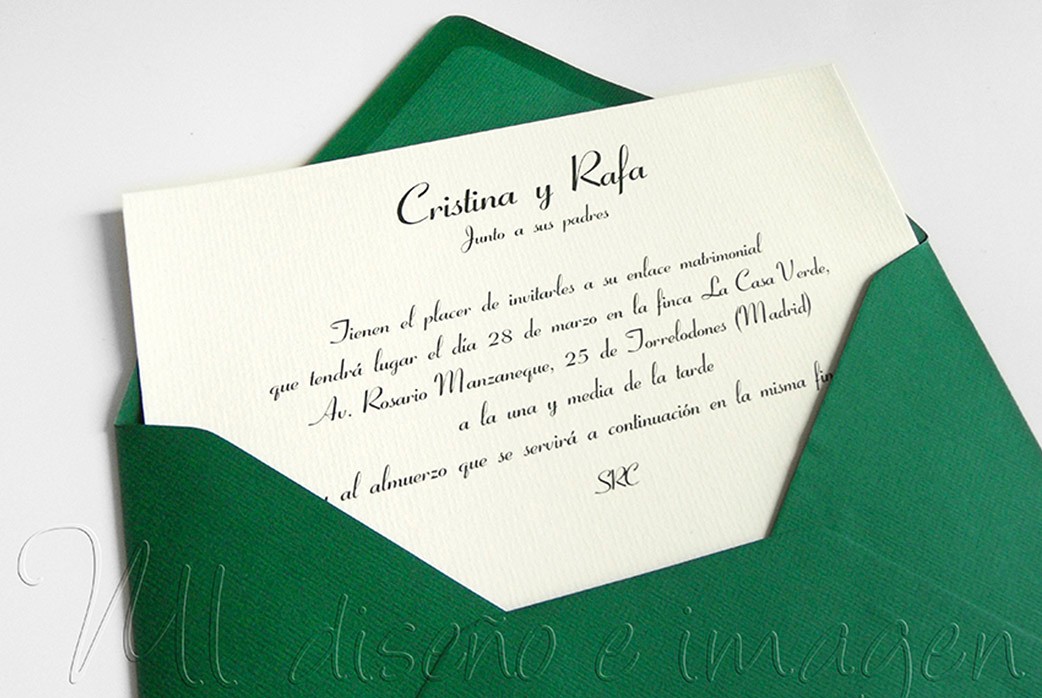 Cristina y Rafa
Junto a sus padres
Tienen el placer de invitarles a su enlace matrimonial
que tendrá lugar el día 28 de marzo en la finca La Casa Verde,
Av. Rosario Manzaneque, 25 de Torrelodones (Madrid)
a la una y media de la tarde
y al almuerzo que se servirá a continuación en la misma fin
SRC
diseño e imagen